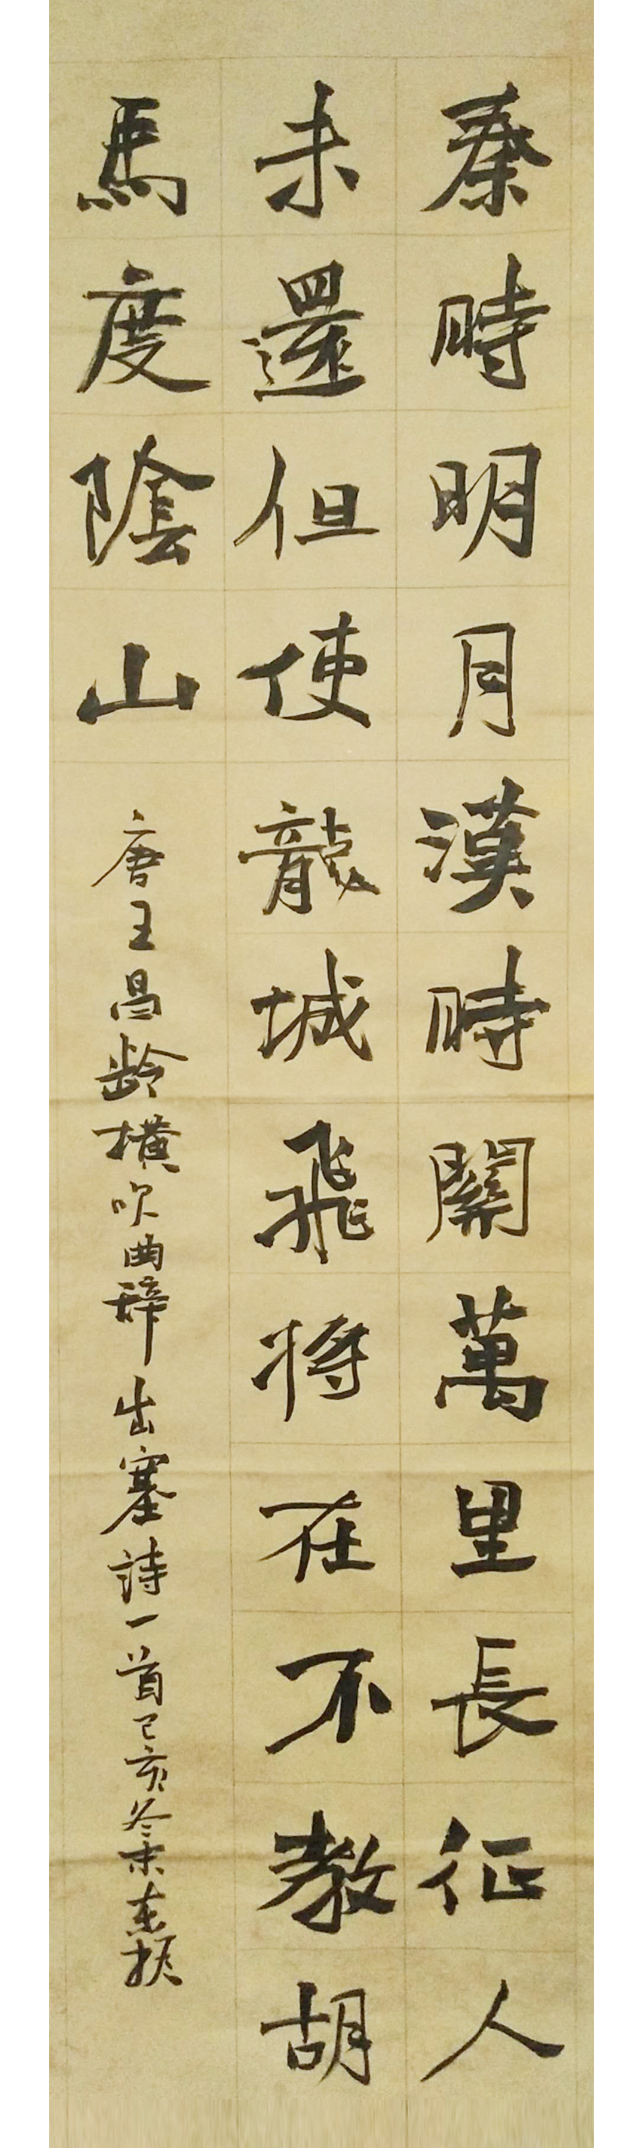 秦時明月漢時關萬里長征人
未還但使龍城飛將在不教胡
馬度陰山
唐王昌齡橫吹曲辭出塞詩一首己亥冬末志振